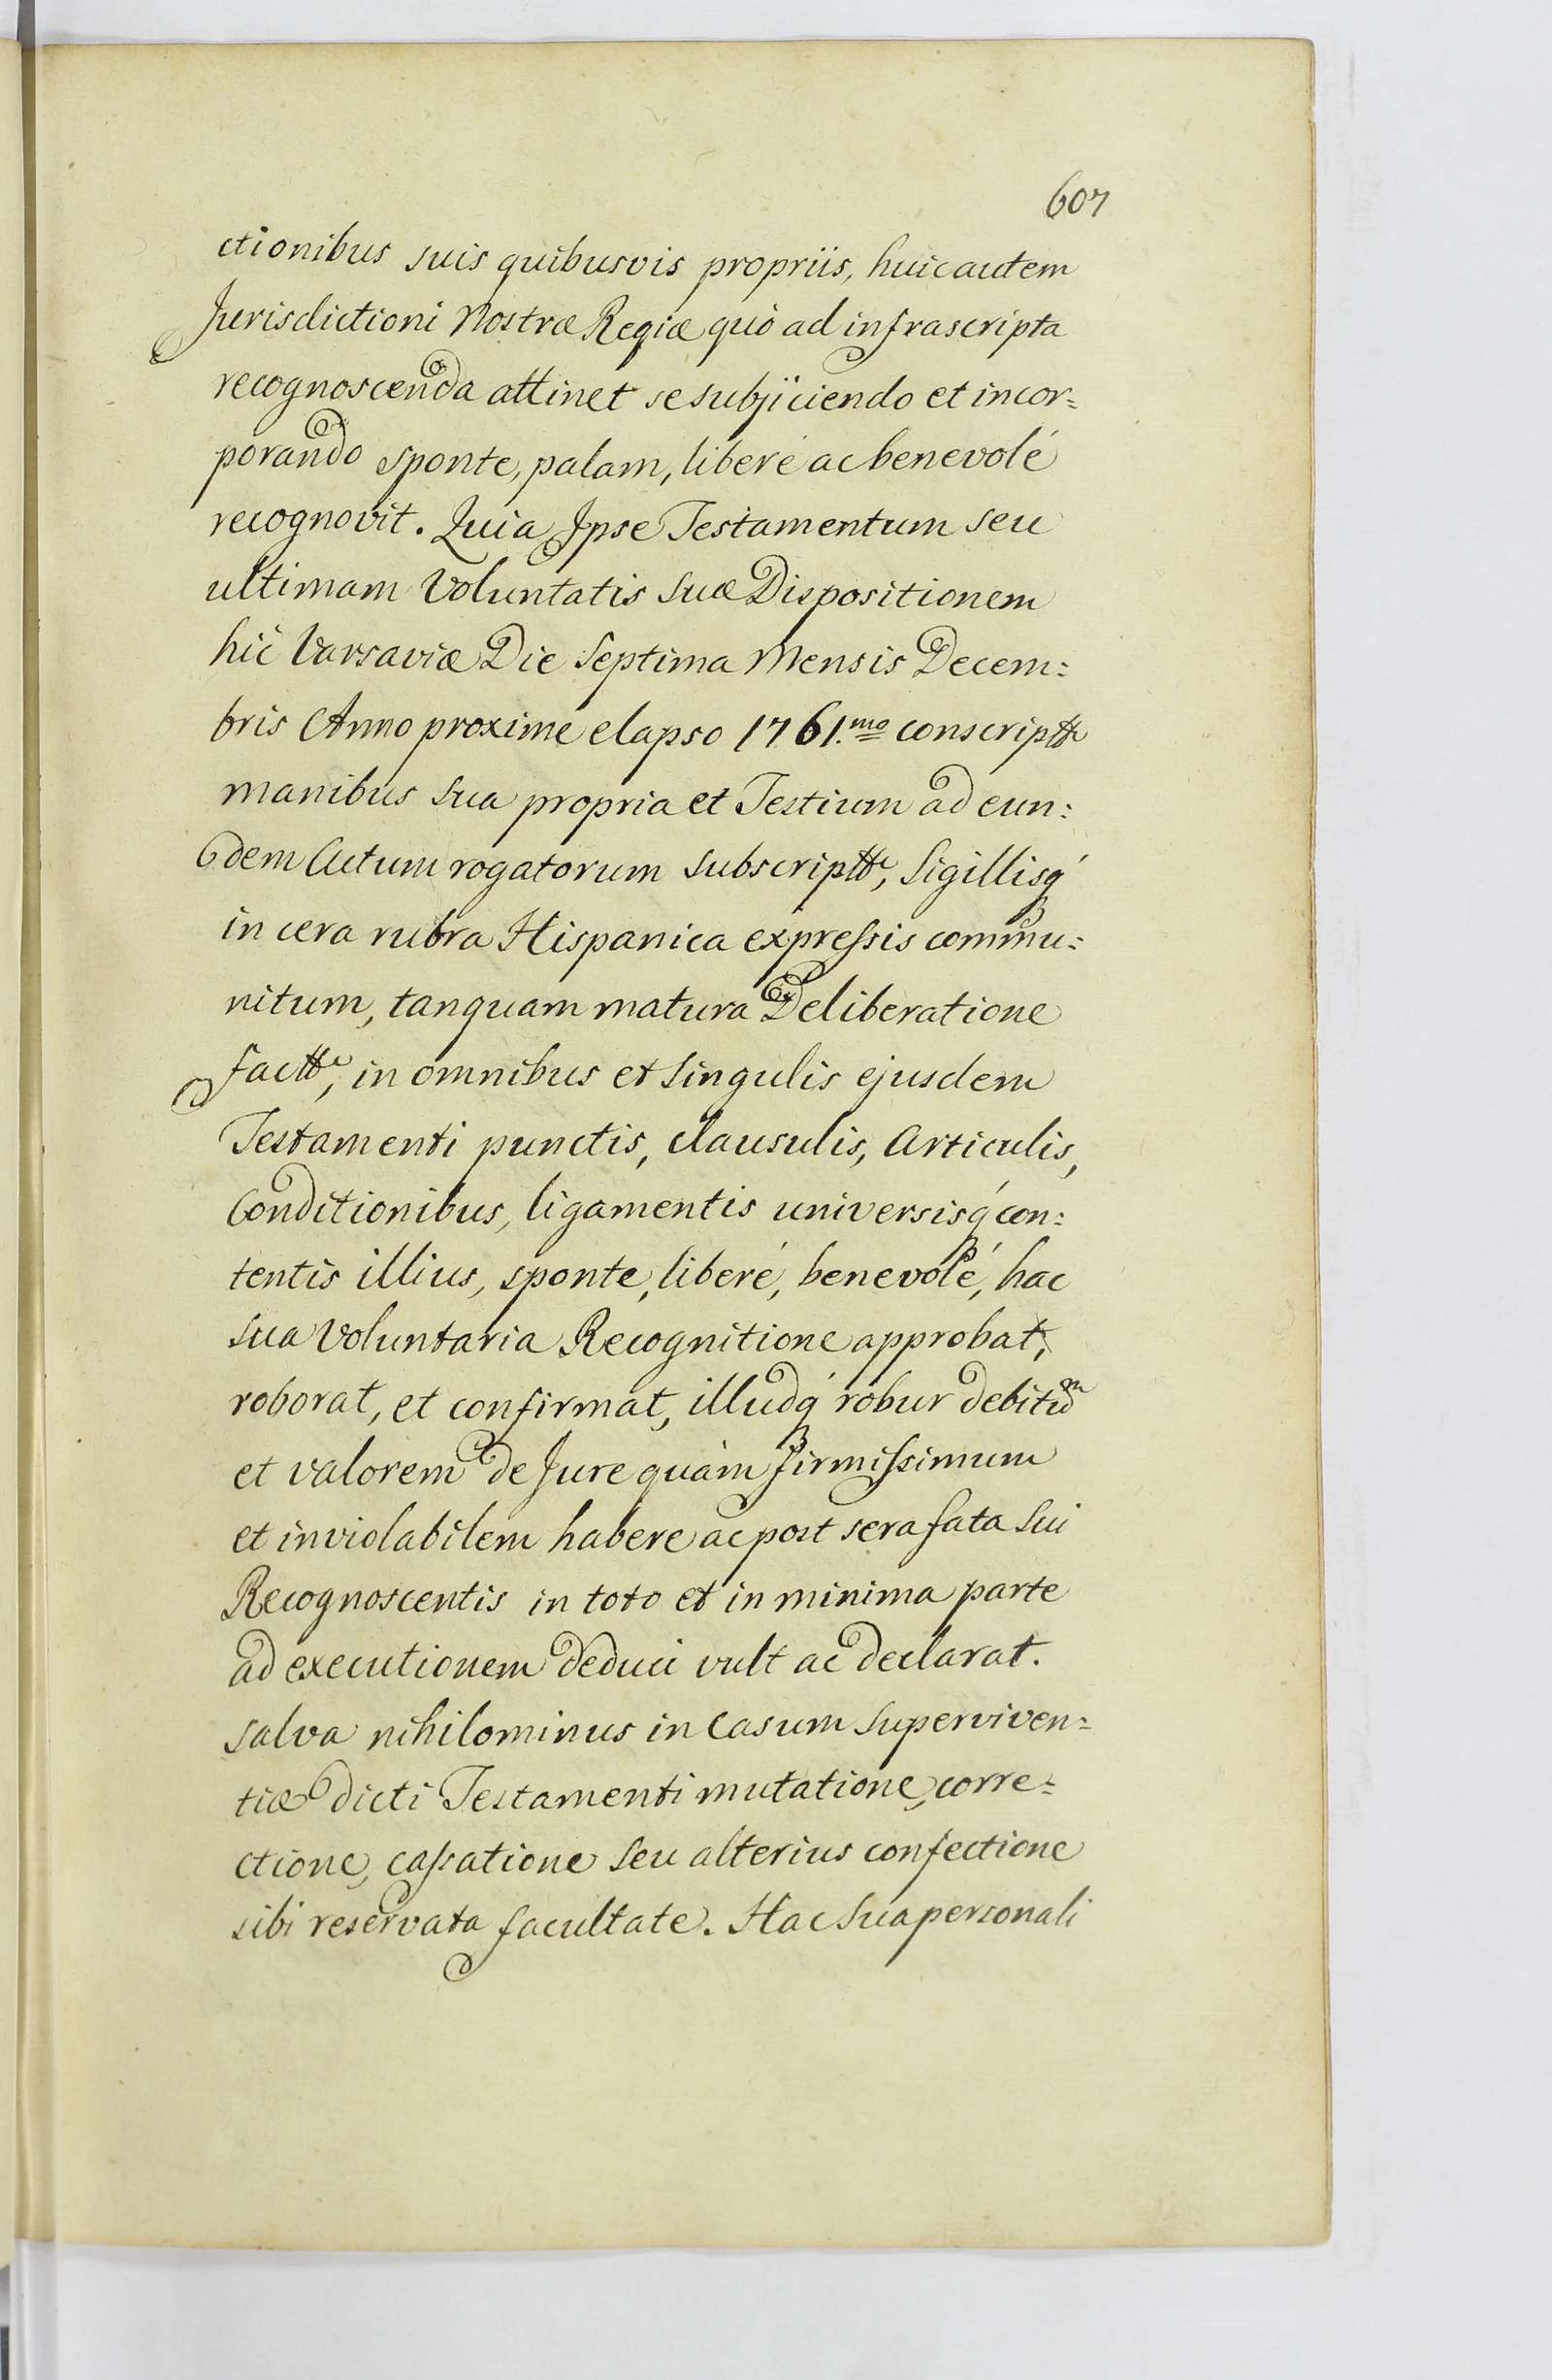 607
ctionibus suis quibusvis propriis, huic autem
Jurisdictioni Nostræ Regiæ quò ad infrascripta
recognoscenda attinet se subjiciendo et incor=
porando sponte, palam, liberé ac benevolé
recognovit. Quia Ipse Testamentum seu
ultimam Voluntatis Suæ Dispositionem
hîc Varsaviæ Die Septima Mensis Decem:
bris Anno proximé elapso 1761.mo conscriptt
manibus sua propria et Testium ad eun:
dem Actum rogatorum subscriptt, Sigillisq́
in cera rubra Hispanica expressis commu:
nitum, tanquam matura Deliberatione
factt, in omnibus et Singulis ejusdem
Testamenti punctis, clausulis, Articulis,
Conditionibus, ligamentis universisq́ con:
tentis illius, sponte, liberé, benevolé, hac
sua Voluntaria Recognitione approbat,
roborat, et confirmat, illudq́ robur debitum
et valorem de Jure quàm firmissimum
et inviolabilem habere ac post sera fata Sui
Recognoscentis in toto et in minima parte
ad executionem deduci vult ac declarat.
salva nihilominus in Casum Superviven=
tiæ dicti Testamenti mutatione, corre=
ctione, cassatione seu alterius confectione
sibi reservata facultate. Hac Sua personali